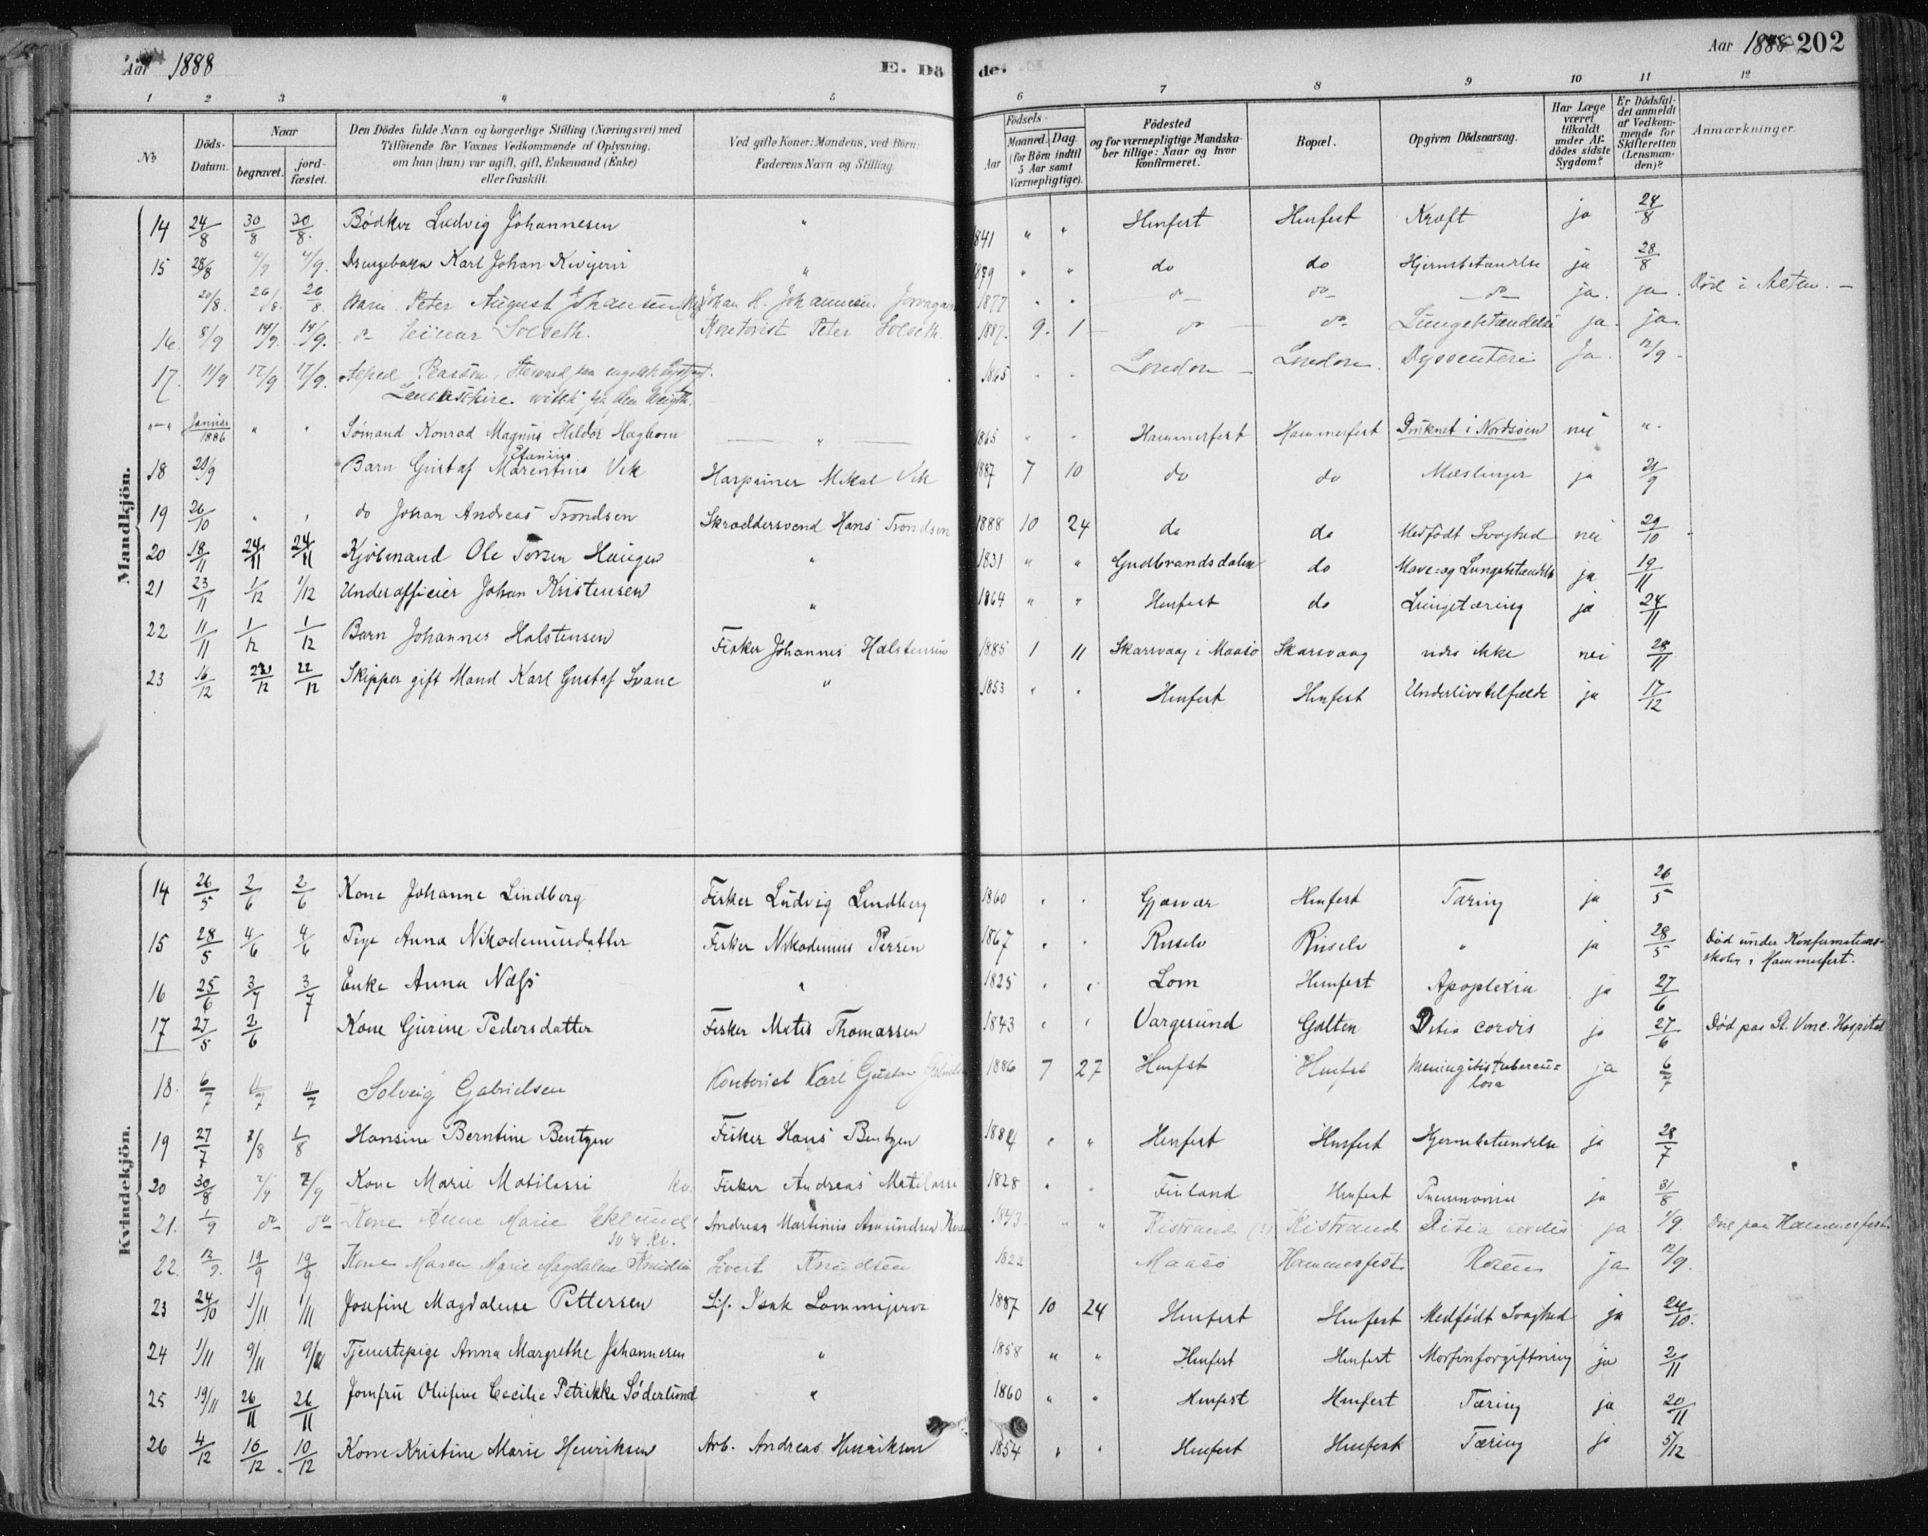 Aar 1888 E. Dö de. Aar 1888 202
1 2 3 4 5 6 7 8 9 10 11 12
No
Döds-Datum.
Naar
begravet.
jord-fæstet.
Den Dödes fulde Navn og borgerlige Stilling (Næringsvei) med
Tilföiende for Voxnes Vedkommende af Oplysning,
om han (hun) var ugift, gift, Enkemand (Enke)
eller fraskilt.
Ved gifte Koner: Mandens, ved Börn:
Faderens Navn og Stilling.
Födsels-
Aar Maaned. Dag.
(for Börn indtil
5 Aar samt
Værnepligtige).
Födested
og for værnepligtige Mandska-
ber tillige: Naar og hvor
konfirmeret.
Bopæl.
Opgiven Dödsaarsag.
Har Læge
været
tilkaldt
under Af-
dödes sidste
Sygdom?
Er Dödsfal-
det anmeldt
af Vedkom-
mende for
Skifteretten
(Lensman-
den)?
Anmærkninger.
Mandkjön.
14 24/8 30/8 30/8. Bødker Ludvig Johannesen " 841 " " Hmfest Hmfest Kræft ja 24/8
15 28/8 4/9 4/9. Drengebarn Karl Johan Kivijervi " 1889 " " do do Hjernebetændelse ja 28/8
20/8. 26/8. 26/8. Barn Peter August Johansen Johan H. Johannesen 1877 " " do do do ja. ja. Död i Alten. –
16. 8/9 14/9. 14/9. do Einar Solbeth. Kontorist Peter Solbeth. 1887. 9. 1 do do Lungebetændelse ja. ja.
17. 11/9 12/9 12/9. Alfred Pearson, Steward paa engelsk 1865 " " London London. Dyssenteri Ja. 12/9.
"–" Januar 1886 " " Sømand Konrad Magnus Hildor Hagbom " 1865 " " Hammerfest Hammerfest Druknet i Nordsøen nei "
18 20/9 Barn Gustaf Marentius Vik Mikal Vik 1887 7 10 do do Mæslinger ja 21/9
19 26/10 " " do Johan Andreas Trondsen Skræddersvend Hans Trondsen 1888 10 24 do do Medfödt Svaghed nei 29/10
20 18/11 24/11 24/11 Kjøbmand Ole Haugen " 1831 " " Gudbrandsdalen do Mave= og Lungebetændelse ja 19/11
21 23/11 1/12 1/12 Underofficier Johan Kristensen " 1864 " " Hmfest do Lungetæring ja 24/11
22 11/11 1/12 1/12 Barn Johannes Halstensen Fisker Johannes Halstensen 1885 1 11 Skarsvaag i Maasø Skarsvaag vides ikke nei 28/11
23 16/12 22/12 22/12 Skipper gift Mand Karl Gustaf Svane " 1853 " " Hmfest Hmfest Underlivstilfælde ja 17/12
Kvindekjön.
14 26/5 2/6 2/6 Kone Johanne Lindberg Fisker Ludvig Lindberg 1860 " " Gjæsvær Hmfest Tæring ja 26/5
15 28/5 4/6 4/6 Pige Anna Nikodemusdatter Fisker Nikodemus Persen 1867 " " Ruselv Ruselv " ja 28/5 Død under Konfirmations-
skolen i Hammerfest.
16 25/6 3/7 3/7 Enke Anna Næss " 1825 " " Lom Hmfest Apoplexia ja 27/6
17 27/5 2/6 Kone Gurine Pedersdatter Fisker Mets Thomassen 1843 " " Vargesund Galten Vitia cordis ja 27/6 Død paa St. Vinc. Hospital
18. 6/7 11/7 11/7 Solveig Gabrielsen Kontorist Karl Gustav Gabrielsen 1886 7 27 Hmfest Hmfest Meningitis tubercu=
losa ja 6/7
19 27/7 1/8 1/8 Hansine Berntine Bentzen Fisker Hans Bentzen 1884 " " Hmfest Hmfest Hjernebetændelse ja 28/7
20 30/8 7/9 7/9 Kone Marie Matilassi kv. Fisker Andreas Matilassi 1828 " " Finland Hmfest Pneumonia ja 31/8
21. 1/9 do do Kone Anne Marie Eklund Andreas Martinius Amundsen 1843 " " Kistrand (?) Kistrand Vitia cordis ja 1/9. Død paa Hammerfest
22. 12/9. 19/9 19/9 Kone Maren Marie Magdalene Knudsen Sivert Knudsen 1822 Maasø Hammerfest Rosen ja 12/9.
23 24/10 1/11 1/11 Josefine Magdalene Pettersen Isak Lommijervi 1887 10 24 Hmfest Hmfest Medfödt Svaghed ja 24/10.
24 1/11 9/11 9/11 Tjenestepige Anna Margrethe Johannesen " 1858 " " Hmfest Hmfest Morfinforgiftning ja 2/11
25 19/11 26/11 26/11 Jomfru Olufine Cecilie Petrikke Söderlund " 1860 " " Hmfest Hmfest Tæring ja 20/11
26 4/12 10/12. 10/12 Kone Kristine Marie Henriksen Arb. Andreas Henriksen 1854 " " Hmfest Hmfest Tæring ja 5/12